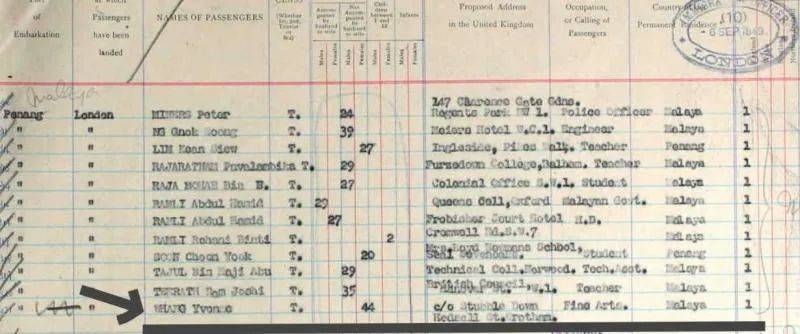 Port of Embarkation
at which Passengers have been landed
NAMES OF PASSENGERS
(Whether 1st, 2nd, Tourist or 3rd)
Accompanied by husband or wife
Not Accompanied by husband or wife
Children between 1 and 12
Infants
Males Females Males Females Males Females Males Females
Proposed Address in the United Kingdom
Occupation, or Calling of Passengers
Permanent Residence
(110)
6 SEP 1949
LONDON
Malaya
147 Clarence Gate Gdns.
Penang London MINERS Peter T. 24 Regents Park NW 1. Police Officer Malaya 1
" " NG Gnok T. 39 Meiers Hotel W.C.1. Engineer Malaya 1
" " LIM Kean Siew T. 27 Ingleside, Teacher Penang 1
" " RAJARATNAM T. 29 Furzedown College, Balham. Teacher Malaya 1
" " RAJA Bin H. T. 27 Colonial Office S.W.1. Student Malaya 1
" " RAMLI Abdul Hamid T. 29 Queens Coll, Oxford Malayan Govt. Malaya 1
" " RAMLI Abdul Hamid T. 27 Frobisher Court Hotel H.D. Malaya 1
Cromwell Rd. S.W.7
" " RAMLI Rohani Binti T. 2 Malaya 1
School,
" " SOON Choon Yook T. 20 Sevenoaks. Student Penang 1
" " TAJUL Bin Haji Abu T. 29 Technical Coll. Norwood. Tech.Asst. Malaya 1
British Council,
" " Ram Joshi T. 35 W.1. Teacher Malaya 1
" " WHANG Yvonne T. 44 c/o Stubble Down Fine Arts. Malaya 1
St. Wrotham.